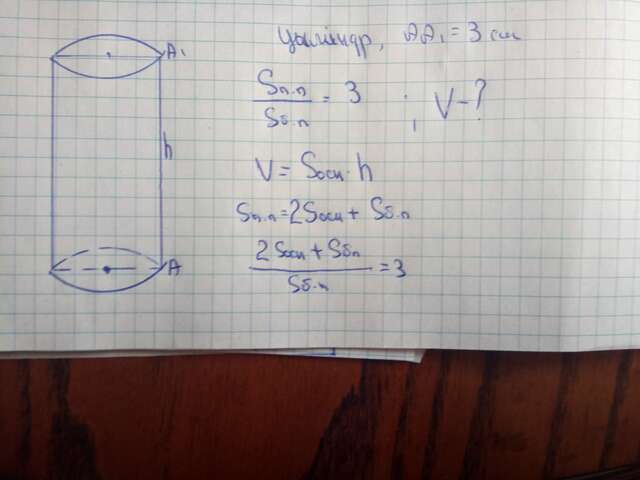 Циліндр, AA₁ = 3 см
Sп.п / Sб.п = 3 ; V - ?
V = Sосн · h
Sп.п = 2Sосн + Sб.п
2Sосн + Sб.п / Sб.п = 3
A₁
h
A